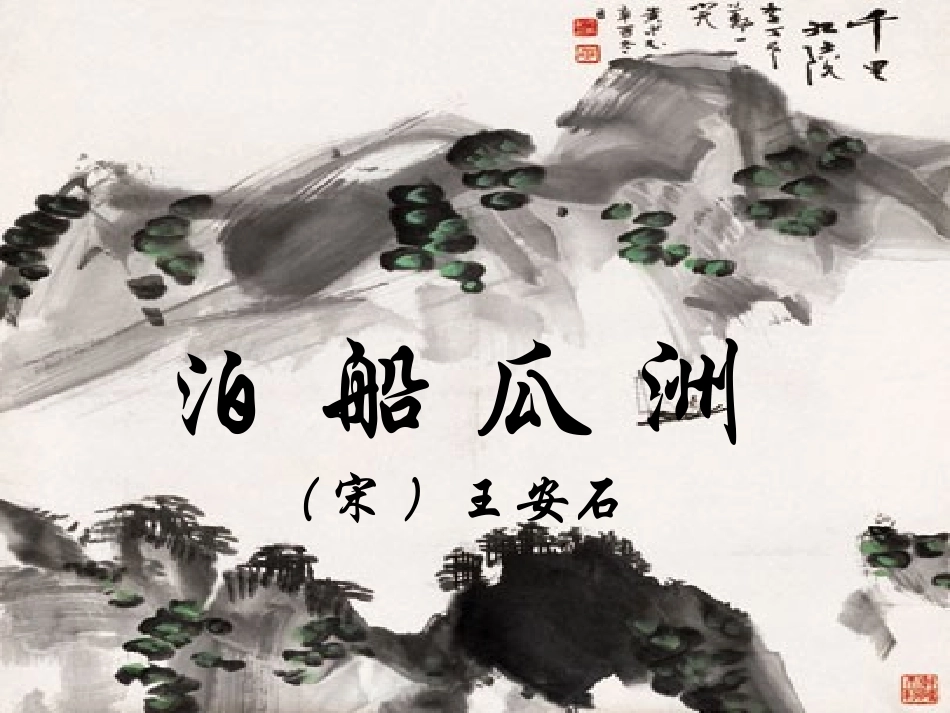 千里
江陵
泊船瓜洲
（宋）王安石